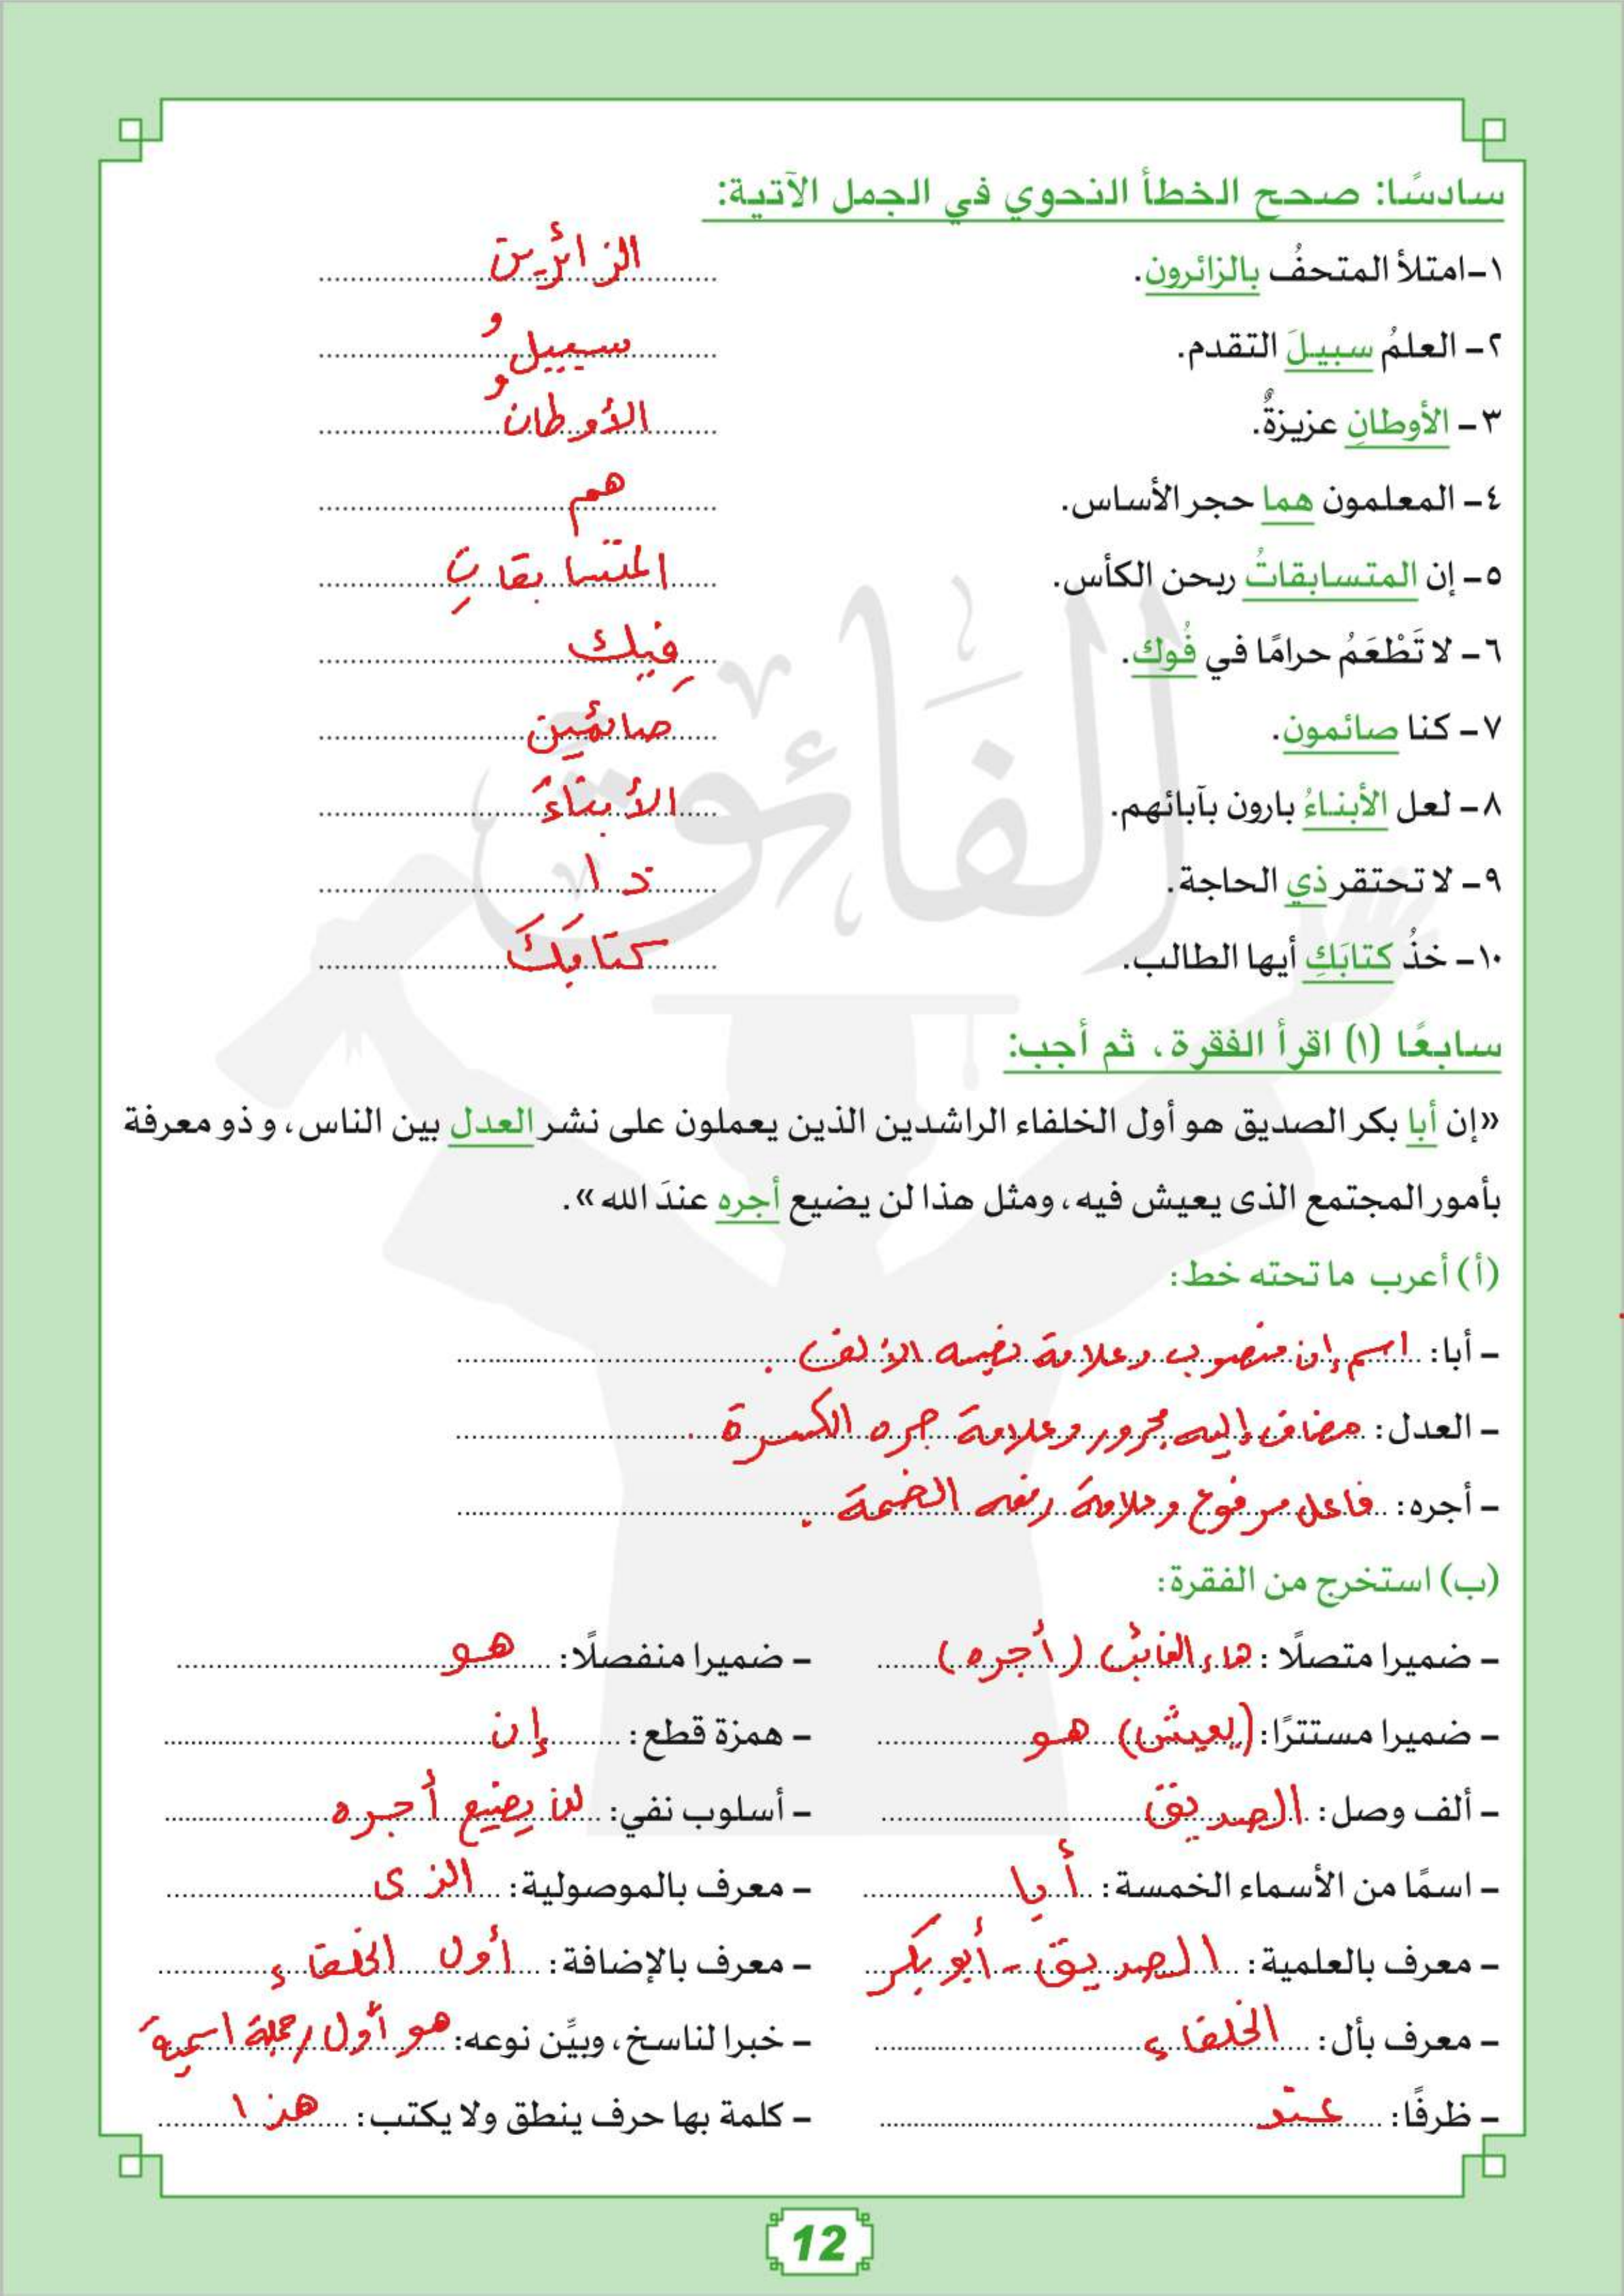 سادسًا: صحح الخطأ النحوي في الجمل الآتية:
١- امتلأ المتحفُ بالزائرون. الزائرين
٢- العلمُ سبيلَ التقدم. سبيلُ
٣- الأوطانِ عزيزةٌ. الأوطانُ
٤- المعلمون هما حجر الأساس. هم
٥- إن المتسابقاتُ ربحن الكأس. المتسابقاتِ
٦- لا تَطْعَمُ حرامًا في فُوك. فِيك
٧- كنا صائمون. صائمين
٨- لعل الأبناءُ بارون بآبائهم. الأبناءَ
٩- لا تحتقر ذي الحاجة. ذا
١٠- خذُ كتابَكِ أيها الطالب. كتابَكَ
سابعًا (١) اقرأ الفقرة، ثم أجب:
«إن أبا بكر الصديق هو أول الخلفاء الراشدين الذين يعملون على نشر العدل بين الناس، و ذو معرفة
بأمور المجتمع الذى يعيش فيه، ومثل هذا لن يضيع أجره عندَ الله».
(أ) أعرب ما تحته خط:
- أبا: اسم إن منصوب وعلامة نصبه الألف.
- العدل: مضاف إليه مجرور وعلامة جره الكسرة.
- أجره: فاعل مرفوع وعلامة رفعه الضمة.
(ب) استخرج من الفقرة:
- ضميرا متصلًا: هاء الغائب (أجره) - ضميرا منفصلًا: هو
- ضميرا مستترًا: (يعيش) هو - همزة قطع: إن
- ألف وصل: الصديق - أسلوب نفي: لن يضيع أجره
- اسمًا من الأسماء الخمسة: أبا - معرف بالموصولية: الذى
- معرف بالعلمية: الصديق - أبو بكر - معرف بالإضافة: أول الخلفاء
- معرف بأل: الخلفاء - خبرا لناسخ، وبيِّن نوعه: هو أول / جملة اسمية
- ظرفًا: عند - كلمة بها حرف ينطق ولا يكتب: هذا
الفائق
12